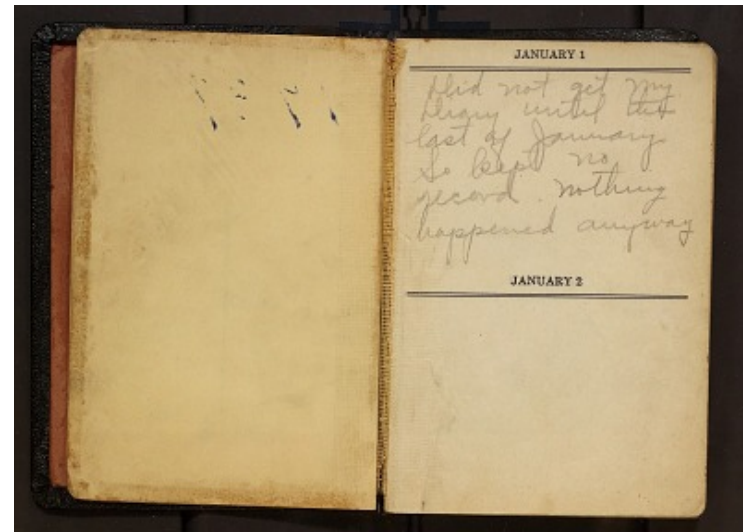 JANUARY 1
Did not get my
Diary until the
last of January
So kept no
record. Nothing
happened anyway
JANUARY 2